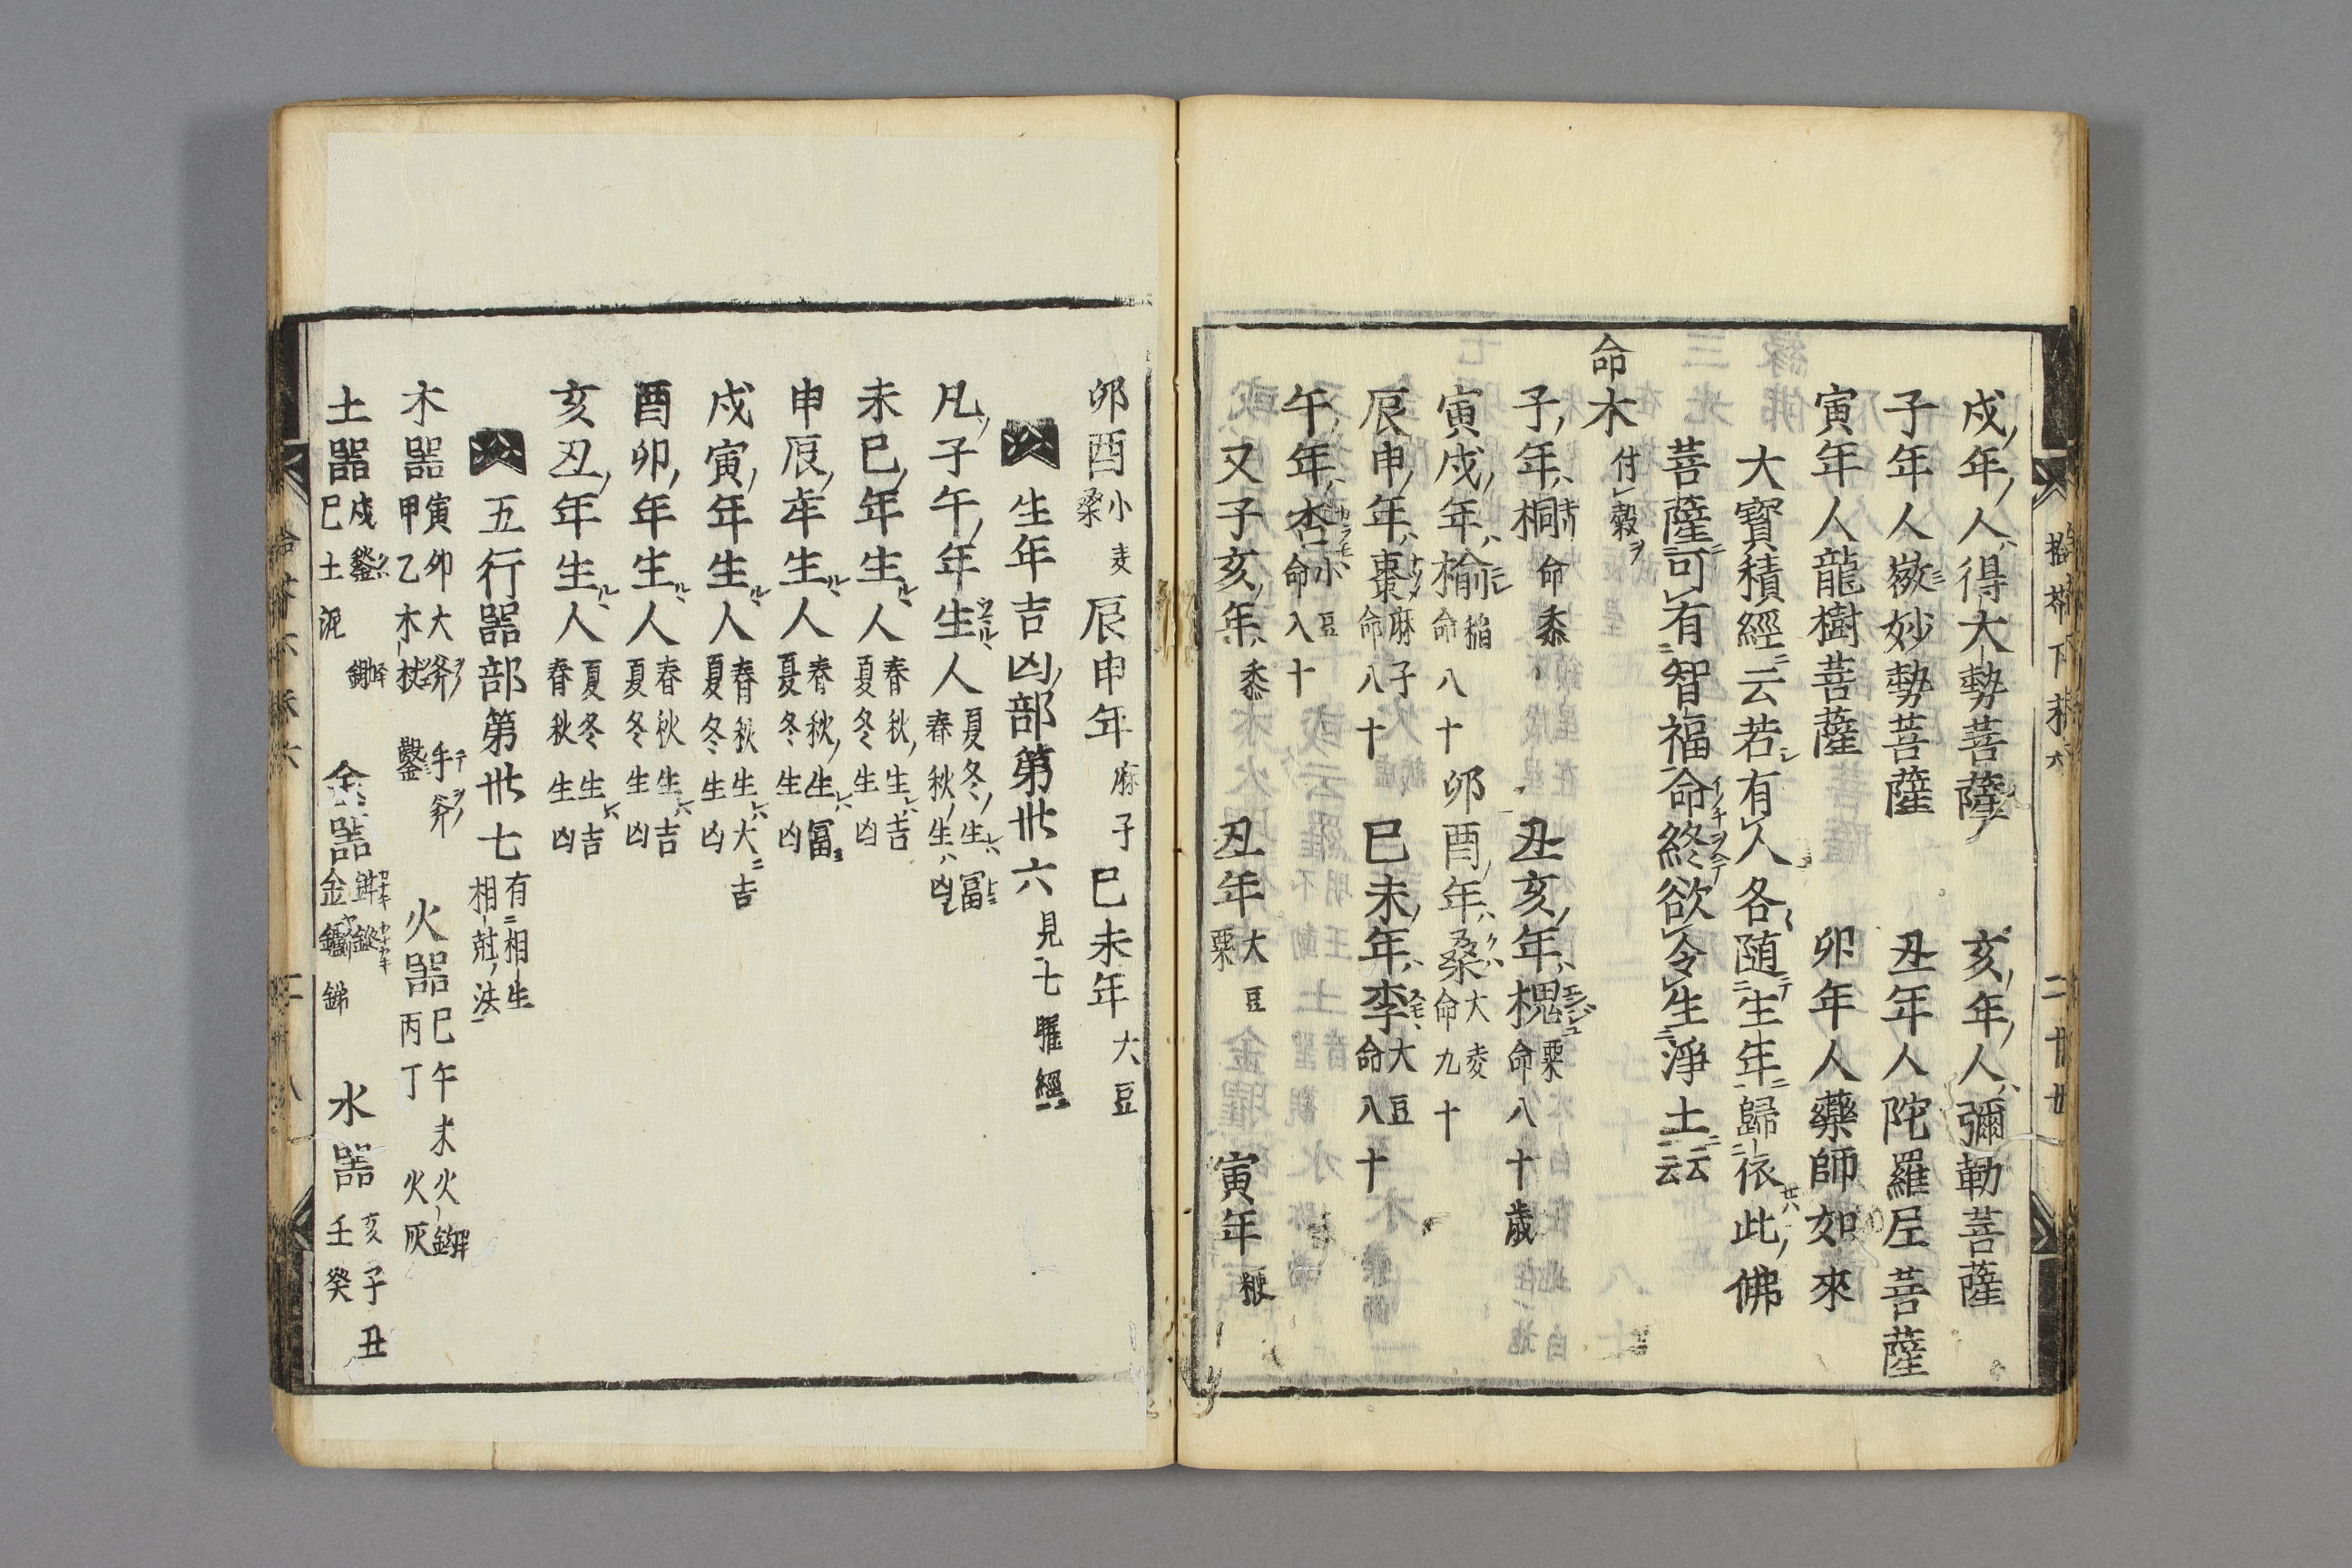 戌年人得大勢菩薩 亥年人彌勒菩薩
子年人嶶妙勢菩薩 丑年人陀羅尼菩薩
寅年人龍樹菩薩 卯年人藥師如來
大寳積經云若有人各随生年歸依此佛
菩薩可有智福命終欲令生淨土云云
命木 付穀ヲ
子年桐 命黍 丑亥年槐 粟 命八十歳
寅戌年楡 稲 命八十 卯酉年桑 大麦 命九十
辰申年棗 麻子 命八十 巳未年李 大豆 命八十
午年杏 小豆 命八十
又子亥年 黍 丑年 大豆 粟 寅年 粳
卯酉 小麦 桒 辰申年 麻子 巳未年 大豆
生年吉凶部第卅六 見七曜經
凡子午年生人 夏冬生冨 春秋生凶
未巳年生人 春秋生吉 夏冬生凶
申辰年生人 春秋生冨 夏冬生凶
戌寅年生人 春秋生大吉 夏冬生凶
酉卯年生人 春秋生吉 夏冬生凶
亥丑年生人 夏冬生吉 春秋生凶
五行器部第卅七 有相生 相尅法
木器 寅卯大斧 手斧 甲乙木杖 鑿 火器 巳午未火 丙丁 火灰
土器 戌 巳土泥 金器 金 水器 亥子丑 壬癸